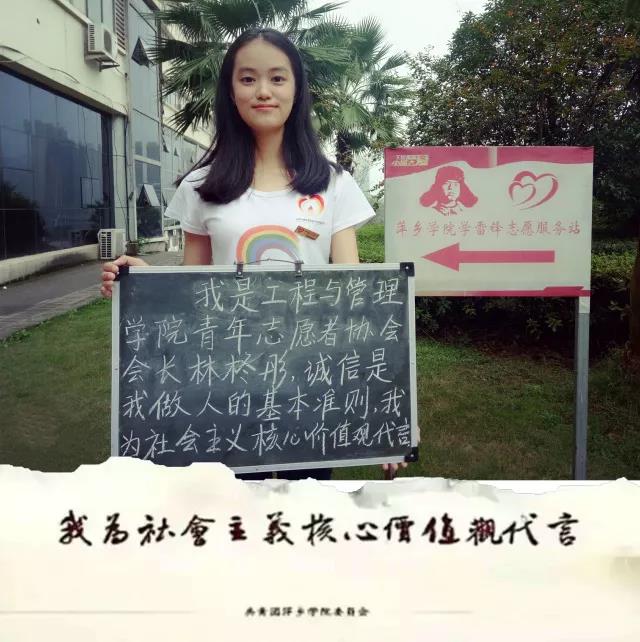 萍乡学院学雷锋志愿服务站
我是工程与管理
学院青年志愿者协会
会长林柊彤,诚信是
我做人的基本准则,我
为社会主义核心价值观代言
我为社會主義核心價值觀代言
共青团萍乡学院委员会